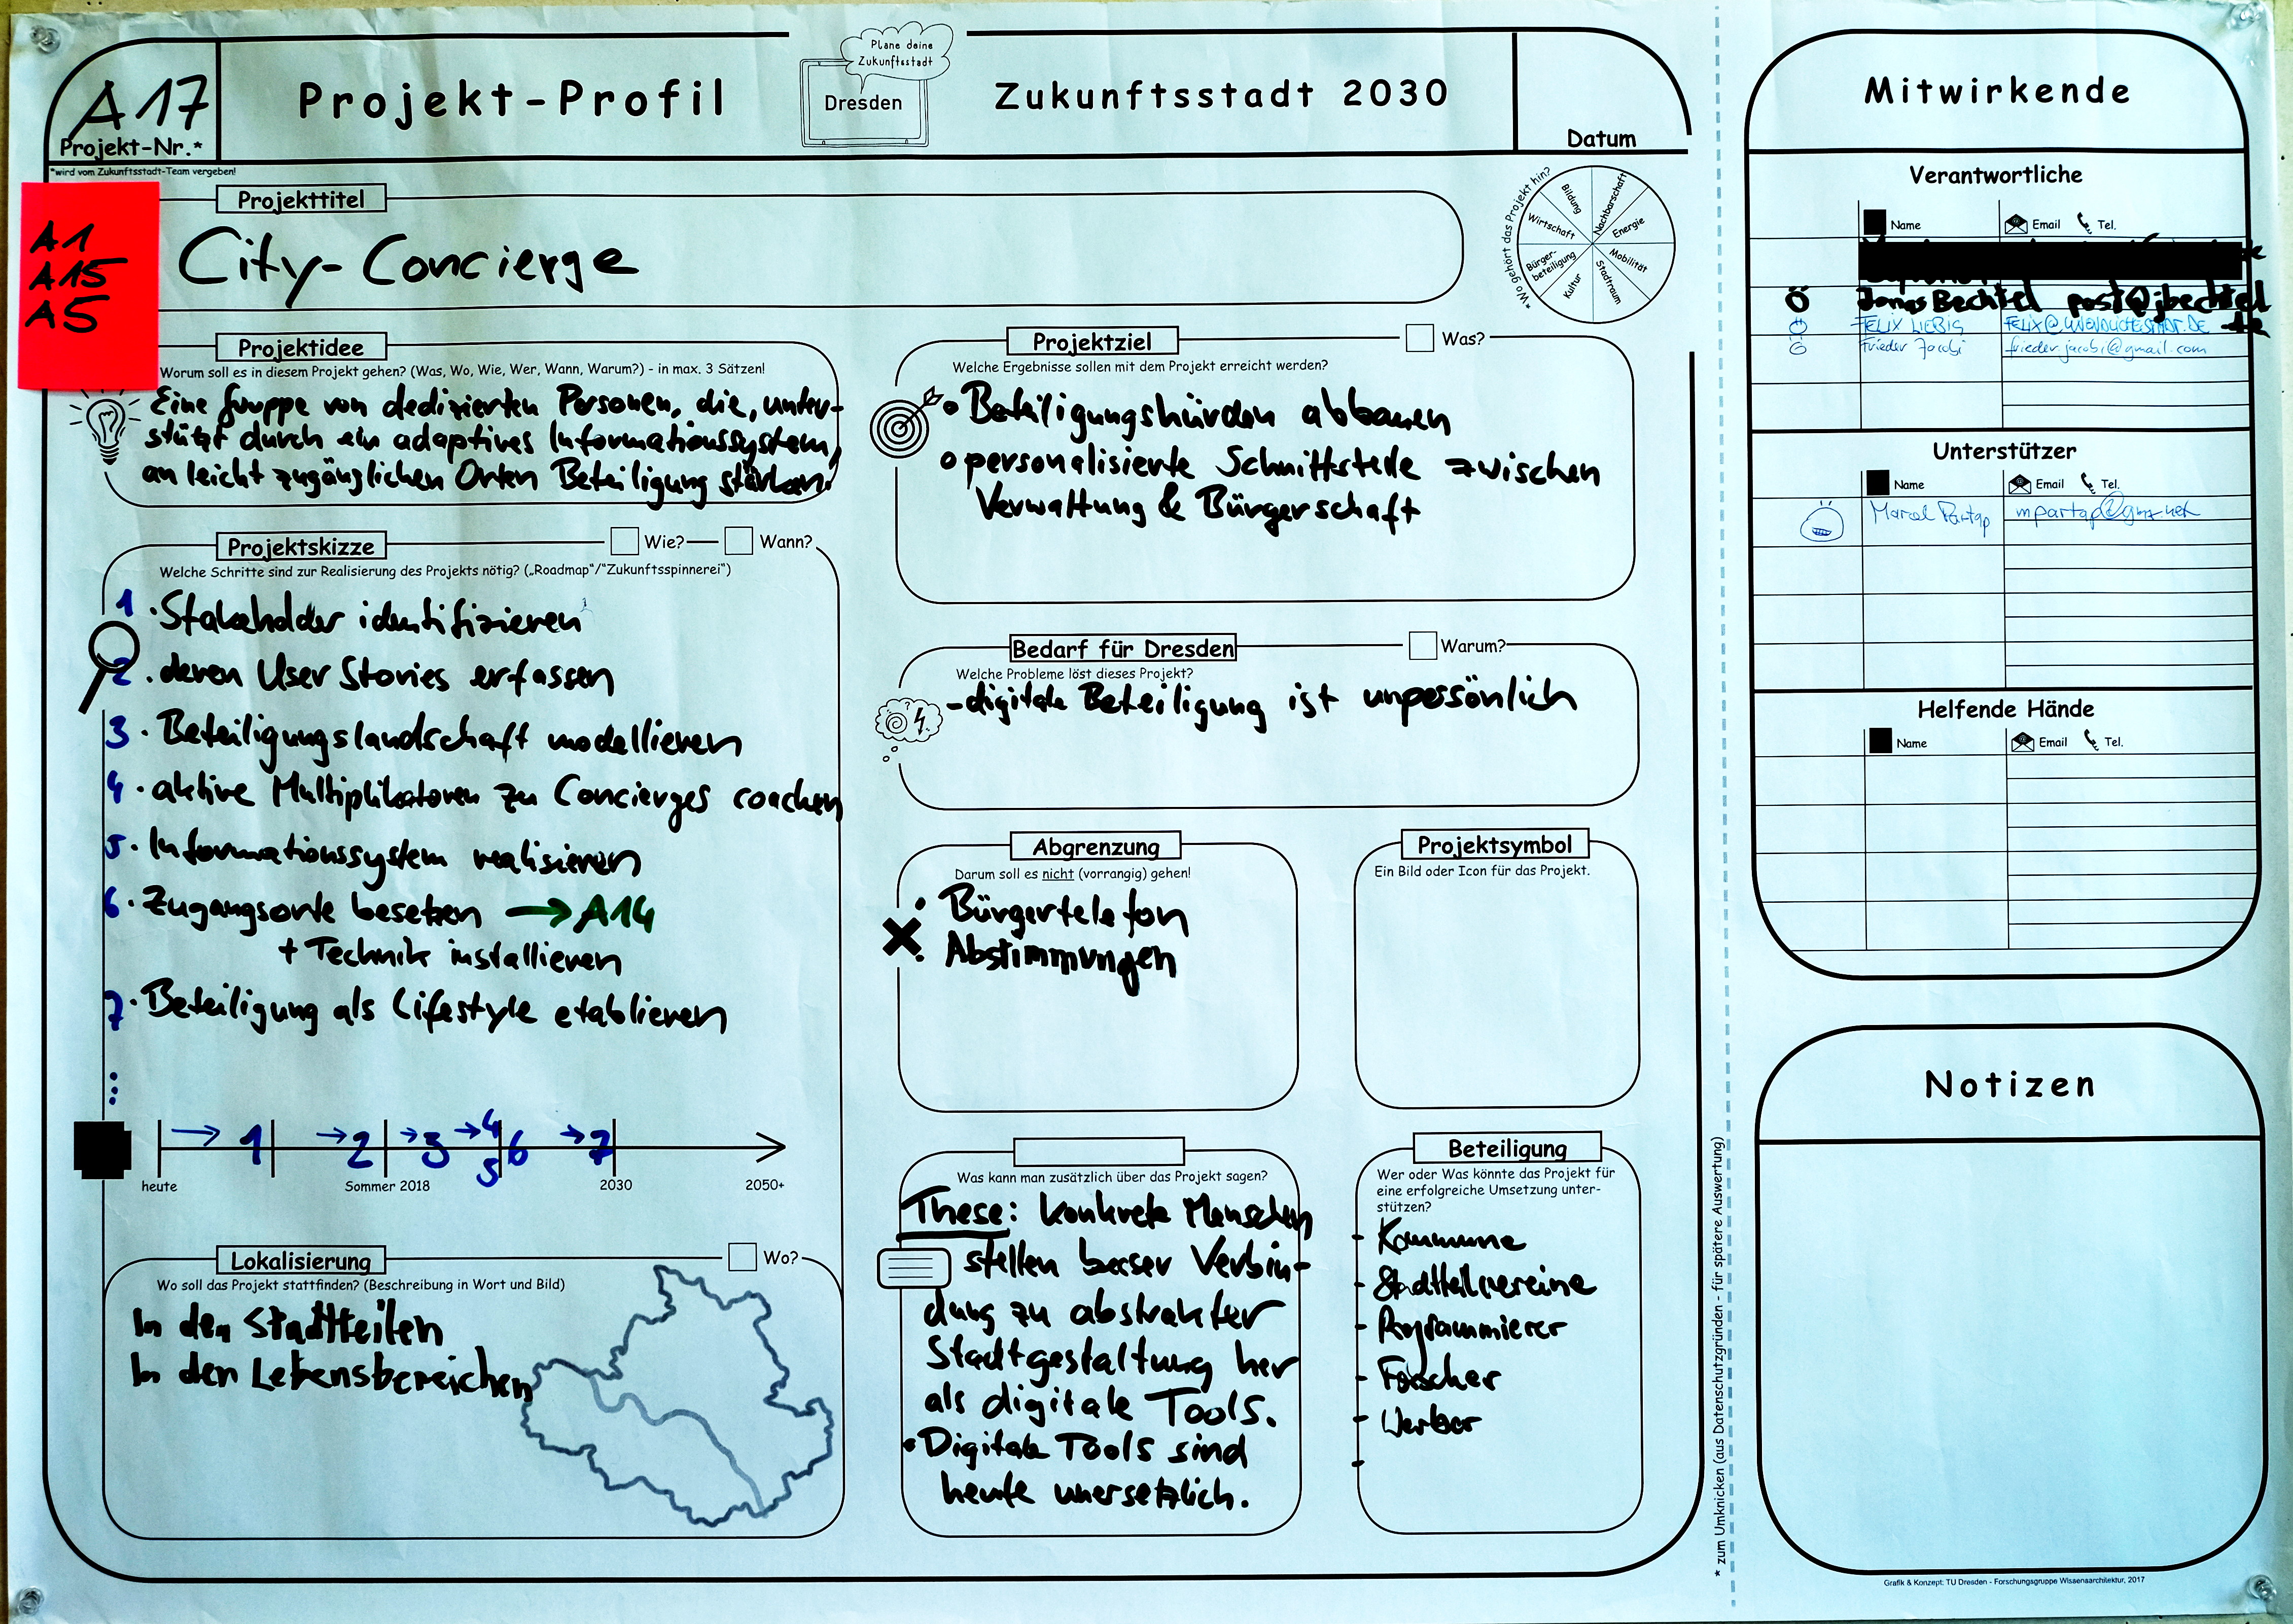 A17
Projekt-Nr.*
*wird vom Zukunftsstadt-Team vergeben!
Projekt-Profil
Plane deine
Zukunftsstadt
Dresden
Zukunftsstadt 2030
Datum
A1
A15
A5
Projekttitel
City-Concierge
*Wo gehört das Projekt hin?
Bildung
Nachbarschaft
Energie
Mobilität
Stadtraum
Kultur
Bürger-
beteiligung
Wirtschaft
Projektidee
Worum soll es in diesem Projekt gehen? (Was, Wo, Wie, Wer, Wann, Warum?) - in max. 3 Sätzen!
Eine Gruppe von dedizierten Personen, die, unter-
stützt durch ein adaptives Informationssystem,
an leicht zugänglichen Orten Beteiligung stärken.
Projektskizze
Wie?
Wann?
Welche Schritte sind zur Realisierung des Projekts nötig? („Roadmap“/“Zukunftsspinnerei“)
1 · Stakeholder identifizieren
2 · deren User Stories erfassen
3 · Beteiligungslandschaft modellieren
4 · aktive Multiplikatoren zu Concierges coachen
5 · Informationssystem realisieren
6 · Zugangsorte besetzen → A14
+ Technik installieren
7 · Beteiligung als Lifestyle etablieren
...
→ 1 → 2 → 3 → 4 6 → 7
5
heute
Sommer 2018
2030
2050+
Lokalisierung
Wo?
Wo soll das Projekt stattfinden? (Beschreibung in Wort und Bild)
In den Stadtteilen
In den Lebensbereichen
Projektziel
Was?
Welche Ergebnisse sollen mit dem Projekt erreicht werden?
• Beteiligungshürden abbauen
o personalisierte Schnittstelle zwischen
Verwaltung & Bürgerschaft
Bedarf für Dresden
Warum?
Welche Probleme löst dieses Projekt?
- digitale Beteiligung ist unpersönlich
Abgrenzung
Darum soll es nicht (vorrangig) gehen!
• Bürgertelefon
• Abstimmungen
Projektsymbol
Ein Bild oder Icon für das Projekt.
Was kann man zusätzlich über das Projekt sagen?
These: konkrete Menschen
stellen besser Verbin-
dung zu abstrakter
Stadtgestaltung her
als digitale Tools.
• Digitale Tools sind
heute unersetzlich.
Beteiligung
Wer oder Was könnte das Projekt für
eine erfolgreiche Umsetzung unter-
stützen?
- Kommune
- Stadtteilvereine
- Programmierer
- Forscher
- Werber
-
* zum Umknicken (aus Datenschutzgründen - für spätere Auswertung)
Mitwirkende
Verantwortliche
Name Email Tel.
Jonas Bechtel post@jbechtel
.de
FELIX LIEBIG FELIX@UNENDLICHESTADT.DE
Frieder Jacobi frieder.jacobi@gmail.com
Unterstützer
Name Email Tel.
Marcel Partap mpartap@gmx.net
Helfende Hände
Name Email Tel.
Notizen
Grafik & Konzept: TU Dresden - Forschungsgruppe Wissensarchitektur, 2017